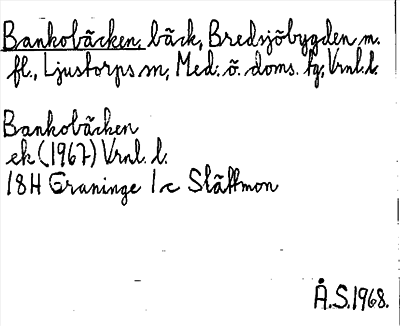 Bankobäcken, bäck, Bredsjöbygden m.
fl., Ljustorps sn, Med. ö. doms. tg, Vrnl. l.
Bankobäcken
ek (1967) Vrnl. l.
18H Graninge 1c Slättmon
Å.S. 1968.